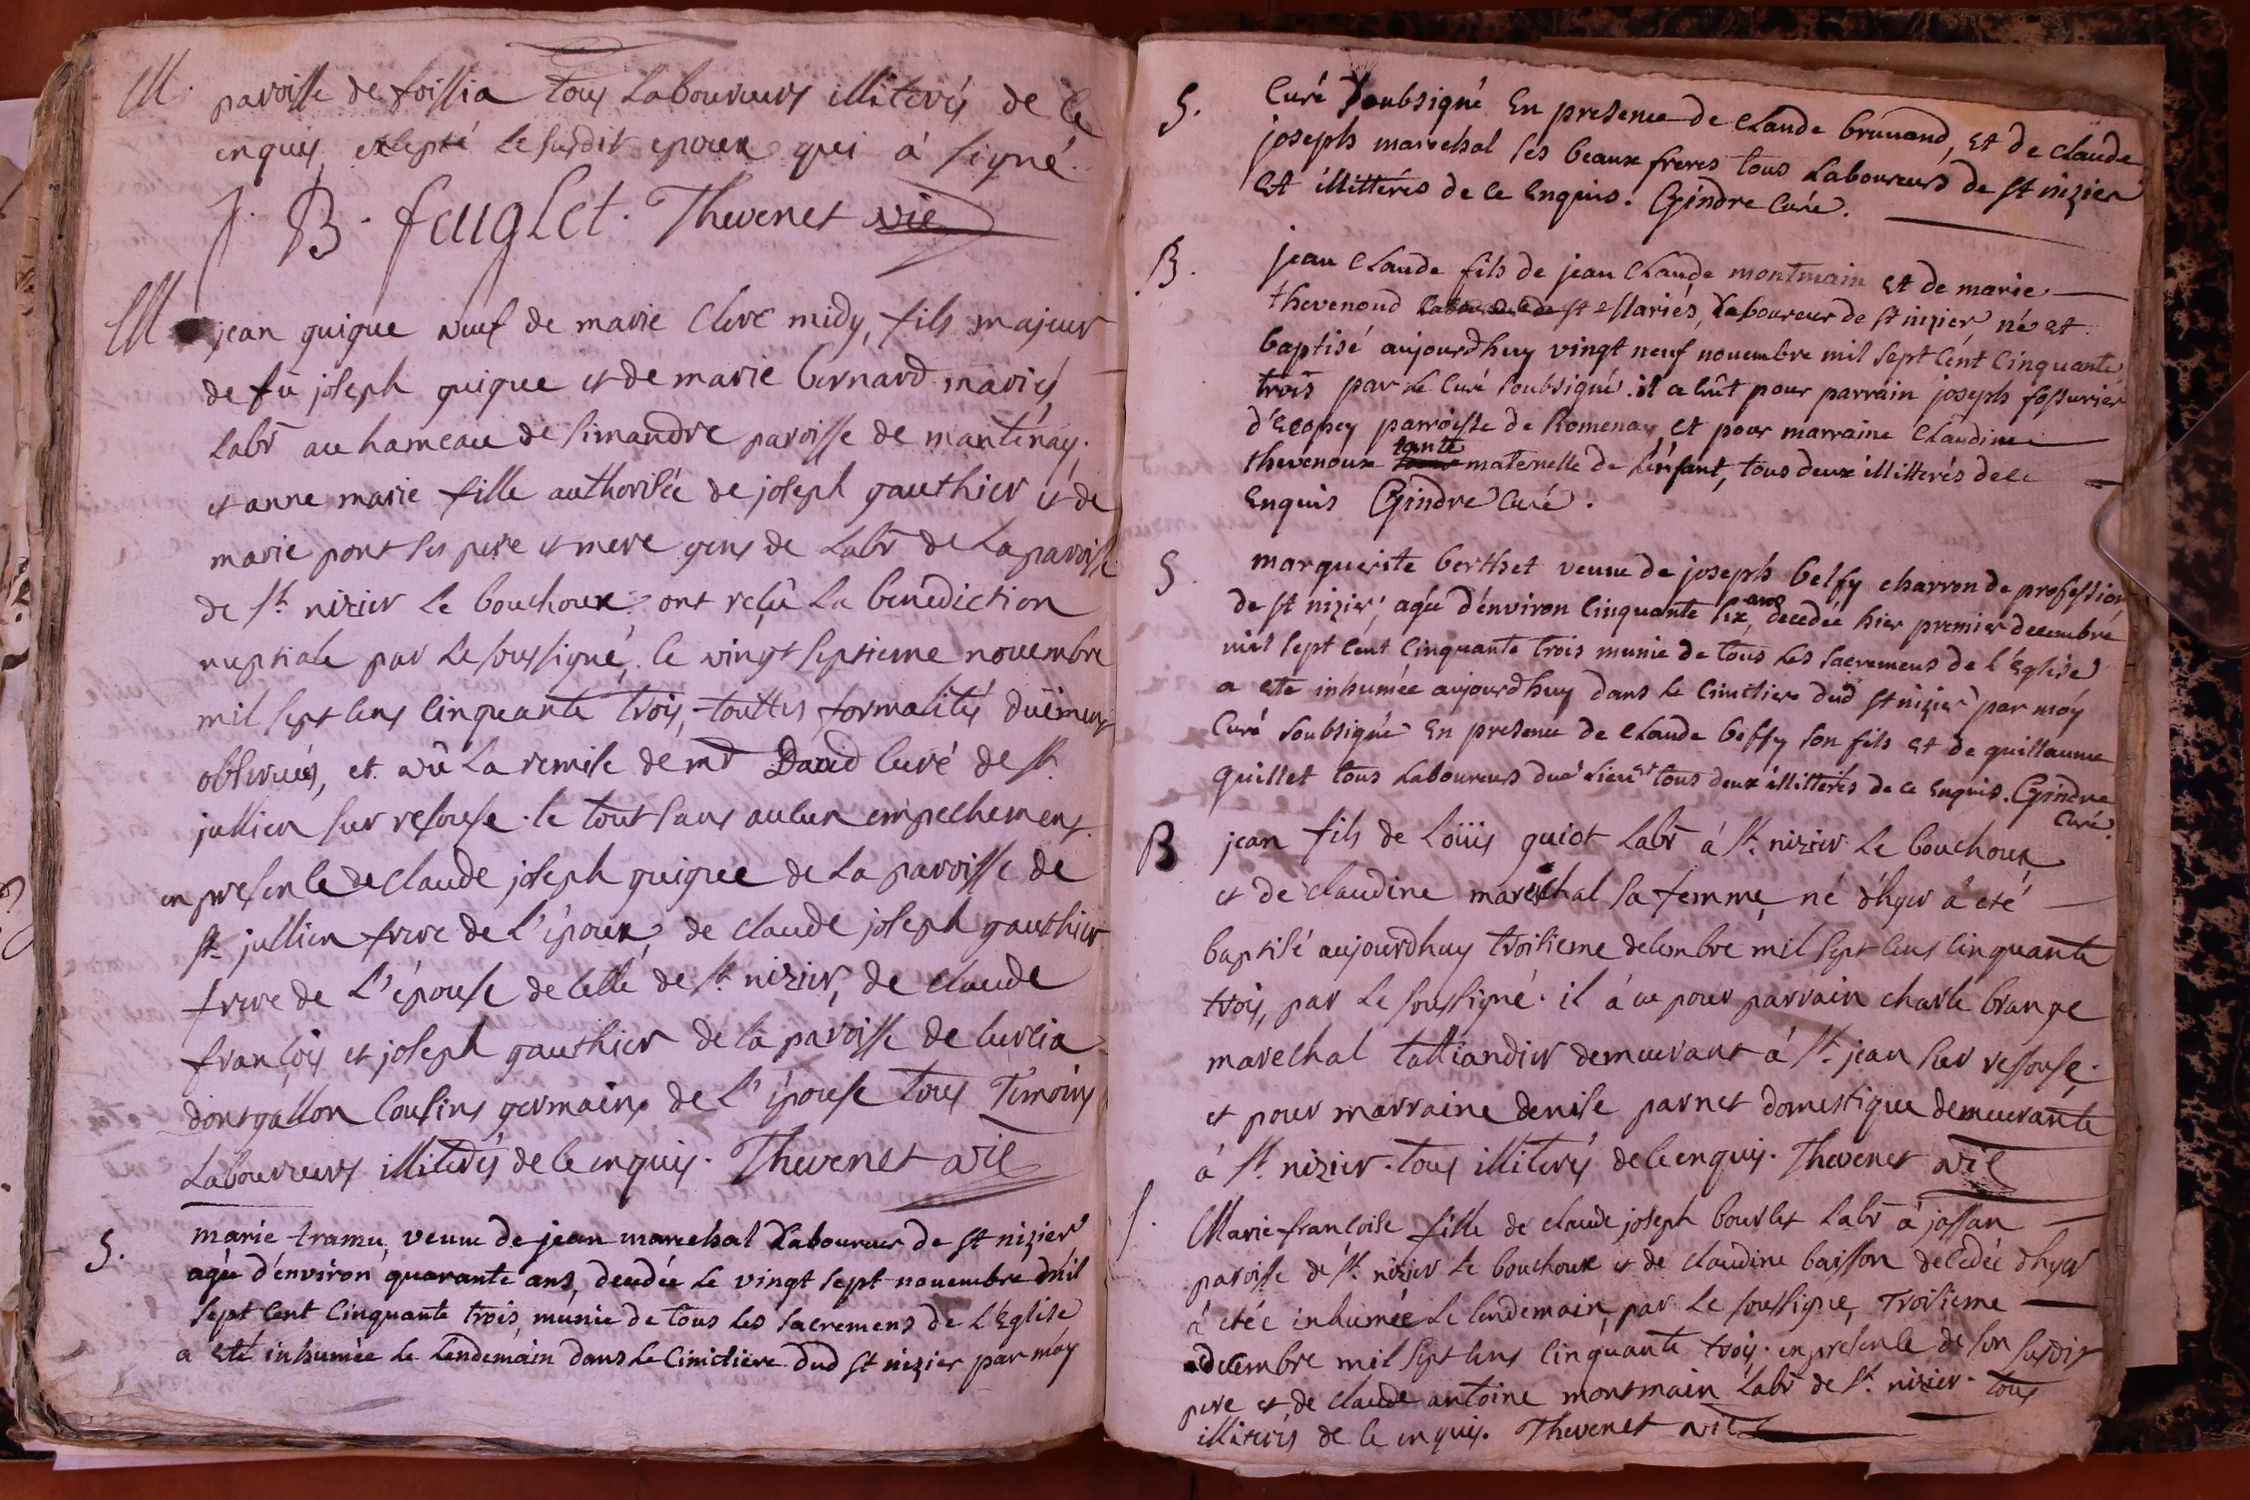 M.
paroisse de foissia tous Laboureurs illiterés de ce
enquis, excepté le susdit epoux qui à signé.
J. B. feuglet. Thevenet vic
M
jean guigue veuf de marie Clere midy, fils majeur
de fû joseph guigue et de marie bernard mariés,
labr au hameau de simandre paroisse de mantenay.
et anne marie fille authorisée de joseph gauthier et de
marie pont ses pere et mere gens de labr de la paroisse
de st nizier le bouchoux, ont reçû la benediction
nuptiale par le soussigné, le vingt septieme novembre
mil sept cens cinquante trois, touttes formalités düement
observées, et vû la remise de mr David curé de st
jullien sur resouse. le tout sans aucun empechement.
en presence de claude joseph guigue de la paroisse de
st jullien frere de l'époux, de claude joseph gauthier
frere de l'épouse de celle de st nizier, de claude
françois et joseph gauthier de la paroisse de curcia
dongallon cousins germains de l'épouse tous temoins
Laboureurs illiterés de ce enquis. Thevenet vic
S.
marie tramu, veuve de jean marechal Laboureur de st nizier
agée d'environ quarante ans, decedée le vingt sept novembre mil
sept cent cinquante trois, munie de tous les sacremens de l'Eglise
a eté inhumée le lendemain dans le cimitiere dud st nizier par moy
S.
Curé soubsigné En presence de claude bruuand, et de claude
joseph marechal ses beaux freres tous Laboureurs de st nizier
et illittérés de ce Enquis. Gindre Curé.
B.
jean claude fils de jean claude montmain et de marie
thevenoud st Mariés, Laboureur de st nizier né et
baptisé aujourdhuy vingt neuf novembre mil sept cent cinquante
trois par le curé soubsigné. il a eût pour parrain joseph fossurier
d'Ecopey parroisse de Romenay, et pour marraine claudine
thevenoux tante maternelle de l'enfant, tous deux illitterés de ce
Enquis Gindre Curé.
S.
marguerite berthet veuve de joseph belfy charron de profession
de st nizier, agée d'environ cinquante six ans, decedée hier premier decembre
mil sept cent cinquante trois munie de tous les sacremens de l'Eglise
a ete inhumée aujourdhuy dans le cimitiere dud st nizier par moy
Curé soubsigné En presence de claude beffy son fils et de guillaume
guillet tous Laboureurs dud lieu et tous deux illitterés de ce Enquis. Gindre
Curé.
B
jean fils de Loüis guiot labr à st nizier le bouchoux
et de claudine marechal sa femme, né d'hyer à eté
baptisé aujourdhuy troisieme decembre mil sept cens cinquante
trois, par le soussigné. il à eu pour parrain charle brange
marechal talliandier demeurant à st jean sur ressouse.
et pour marraine denise parnet domestique demeurante
à st nizier. tous illiterés de ce enquis. Thevenet vic
S.
Marie françoise fille de claude joseph bourlet labr à jossan
paroisse de st nizier le bouchoux et de claudine baisson decedée d'hyer
à etée inhumée le lendemain, par le soussigné, troisieme
decembre mil sept cens cinquante trois. en presence de son susdit
pere et de claude antoine montmain labr de st nizier. tous
illiterés de ce enquis. Thevenet vic